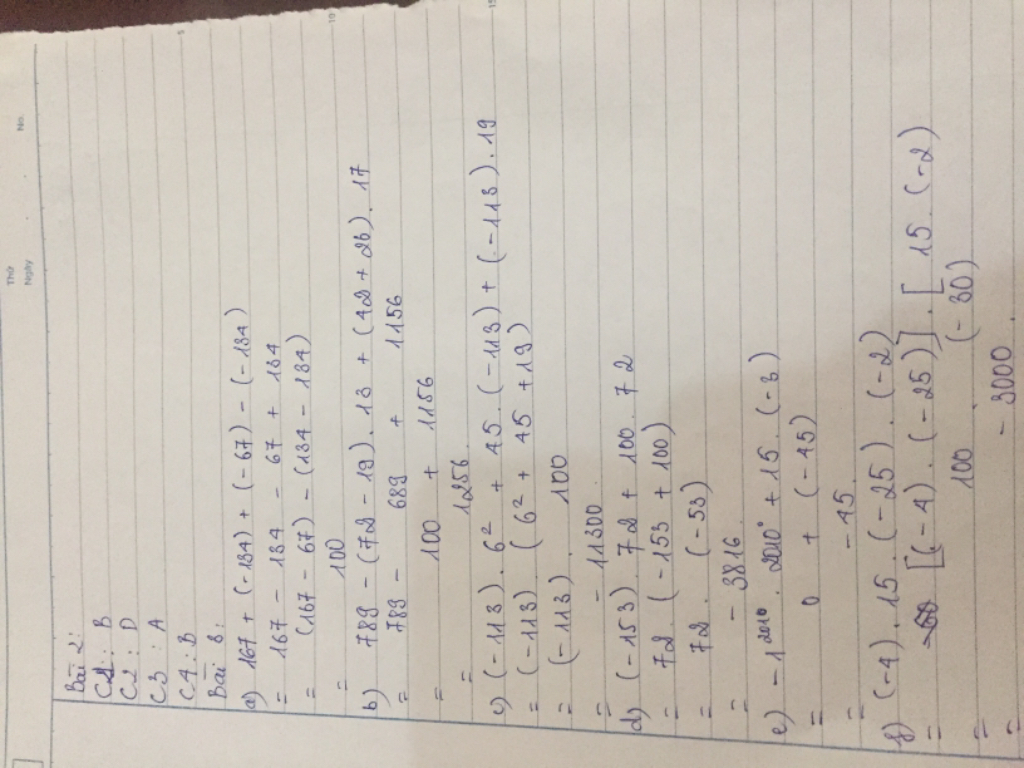 Thứ
Ngày
No.
5
10
15
Bài 2:
C1: B
C2: D
C3: A
C4: B
Bài 3:
a) 167 + (-134) + (-67) - (-134)
= 167 - 134 - 67 + 134
= (167 - 67) - (134 - 134)
= 100
b) 789 - (72 - 19) . 13 + (42 + 26) . 17
= 789 - 689 + 1156
= 100 + 1156
= 1256
c) (-113) . 6² + 45 . (-113) + (-113) . 19
= (-113) . (6² + 45 + 19)
= (-113) . 100
= - 11300
d) (-153) . 72 + 100 . 72
= 72 . (-153 + 100)
= 72 . (-53)
= - 3816
e) -1²⁰¹⁰ . 2010⁰ + 15 . (-3)
= 0 + (-45)
= - 45
f) (-4) . 15 . (-25) . (-2)
= [(-4) . (-25)] . [ 15 . (-2)
= 100 . (- 30)
= - 3000